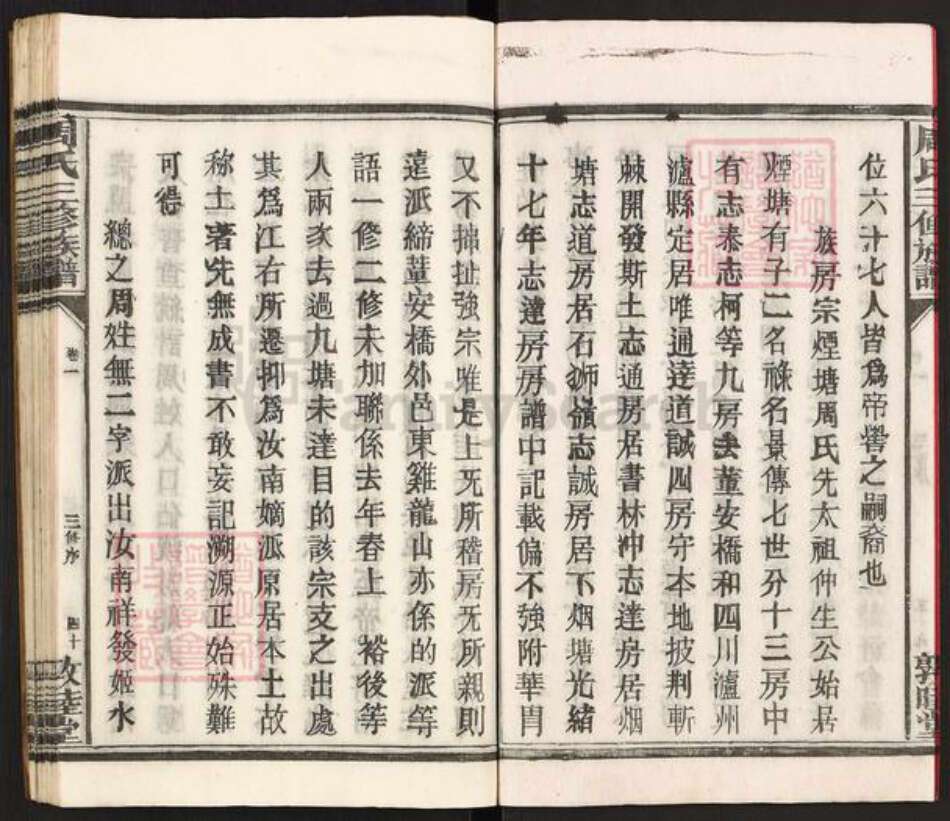 位六十七人皆爲帝嚳之嗣裔也
族房宗煙塘周氏先太祖仲生公始居
煙塘有子二名祿名景傳七世分十三房中
有志泰志柯等九房去董安橋和四川瀘州
瀘縣定居唯通達道誠四房守本地披荆斬
棘開發斯土志通房居書林冲志達房居烟
塘志道房居石獅嶺志誠房居下烟塘光緒
十七年志達房房譜中記載偏不強附華胄
又不拙扯強宗唯是上旡所稽房旡所親則
遠派締董安橋外邑東雞龍山亦係的派等
語一修二修未加聯係去年春上 裕後等
人兩次去過九塘未達目的該宗支之出處
其爲江右所遷抑爲汝南嫡派原居本土故
称土著先無成書不敢妄記溯源正始殊難
可得
總之周姓無二字派出汝南祥發姬水
周氏三修族譜
卷一
三修序
四十
敦睦堂
周氏三修族譜
敦睦堂
FamilySearch